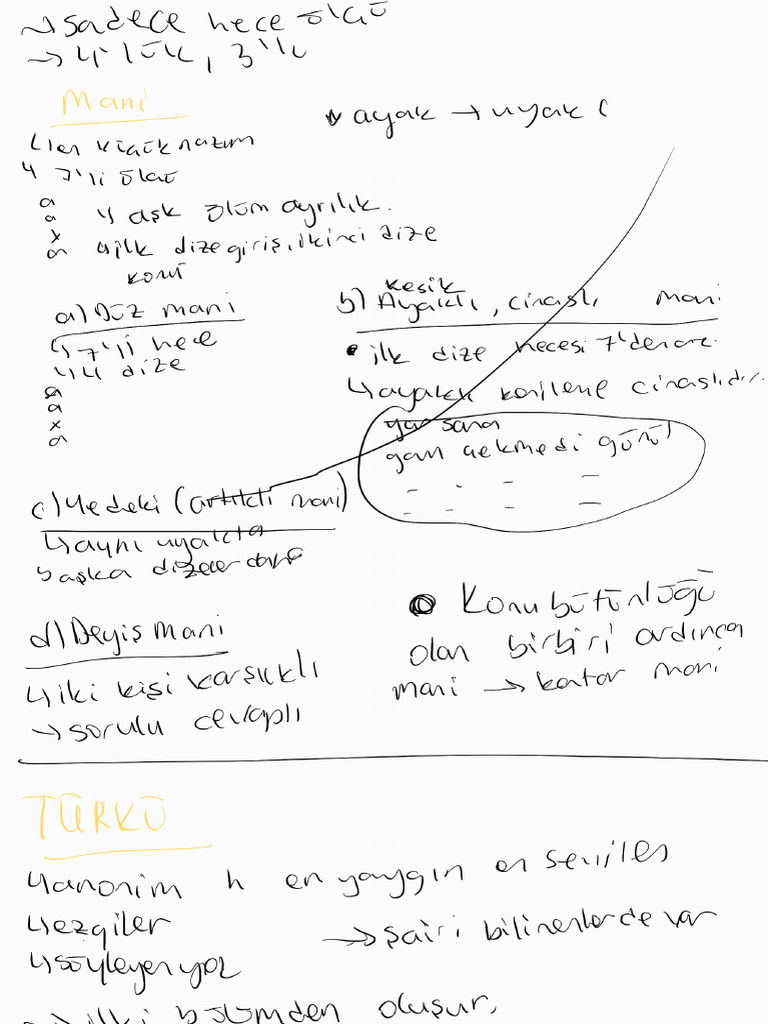 → sadece hece ölçü
→ 4'lük, 3'lü
Mani
ayak → uyak (
↳ en küçük nazım
↳ 7'li ölçü
a
a
x
a
↳ aşk ölüm ayrılık.
↳ ilk dize giriş, ikinci dize
konu
a) Düz mani
↳ 7'li hece
↳ 4 dize
a
a
x
a
b) Kesik
Ayaklı, cinaslı mani
• ilk dize hecesi 7'den az.
↳ ayaklı kafiyeli cinaslıdır.
yar sana
gam çekmedi gönül
c) Yedekli (artıklı mani)
↳ aynı uyakta
başka dizeler daha
d) Deyiş mani
↳ iki kişi karşılıklı
→ sorulu cevaplı
• Konu bütünlüğü
olan birbiri ardınca
mani → katar mani
TÜRKÜ
↳ anonim h en yaygın en sevilen
↳ ezgiler
→ şairi bilinenler de var
↳ söyleyen yok
→ iki bölümden oluşur.